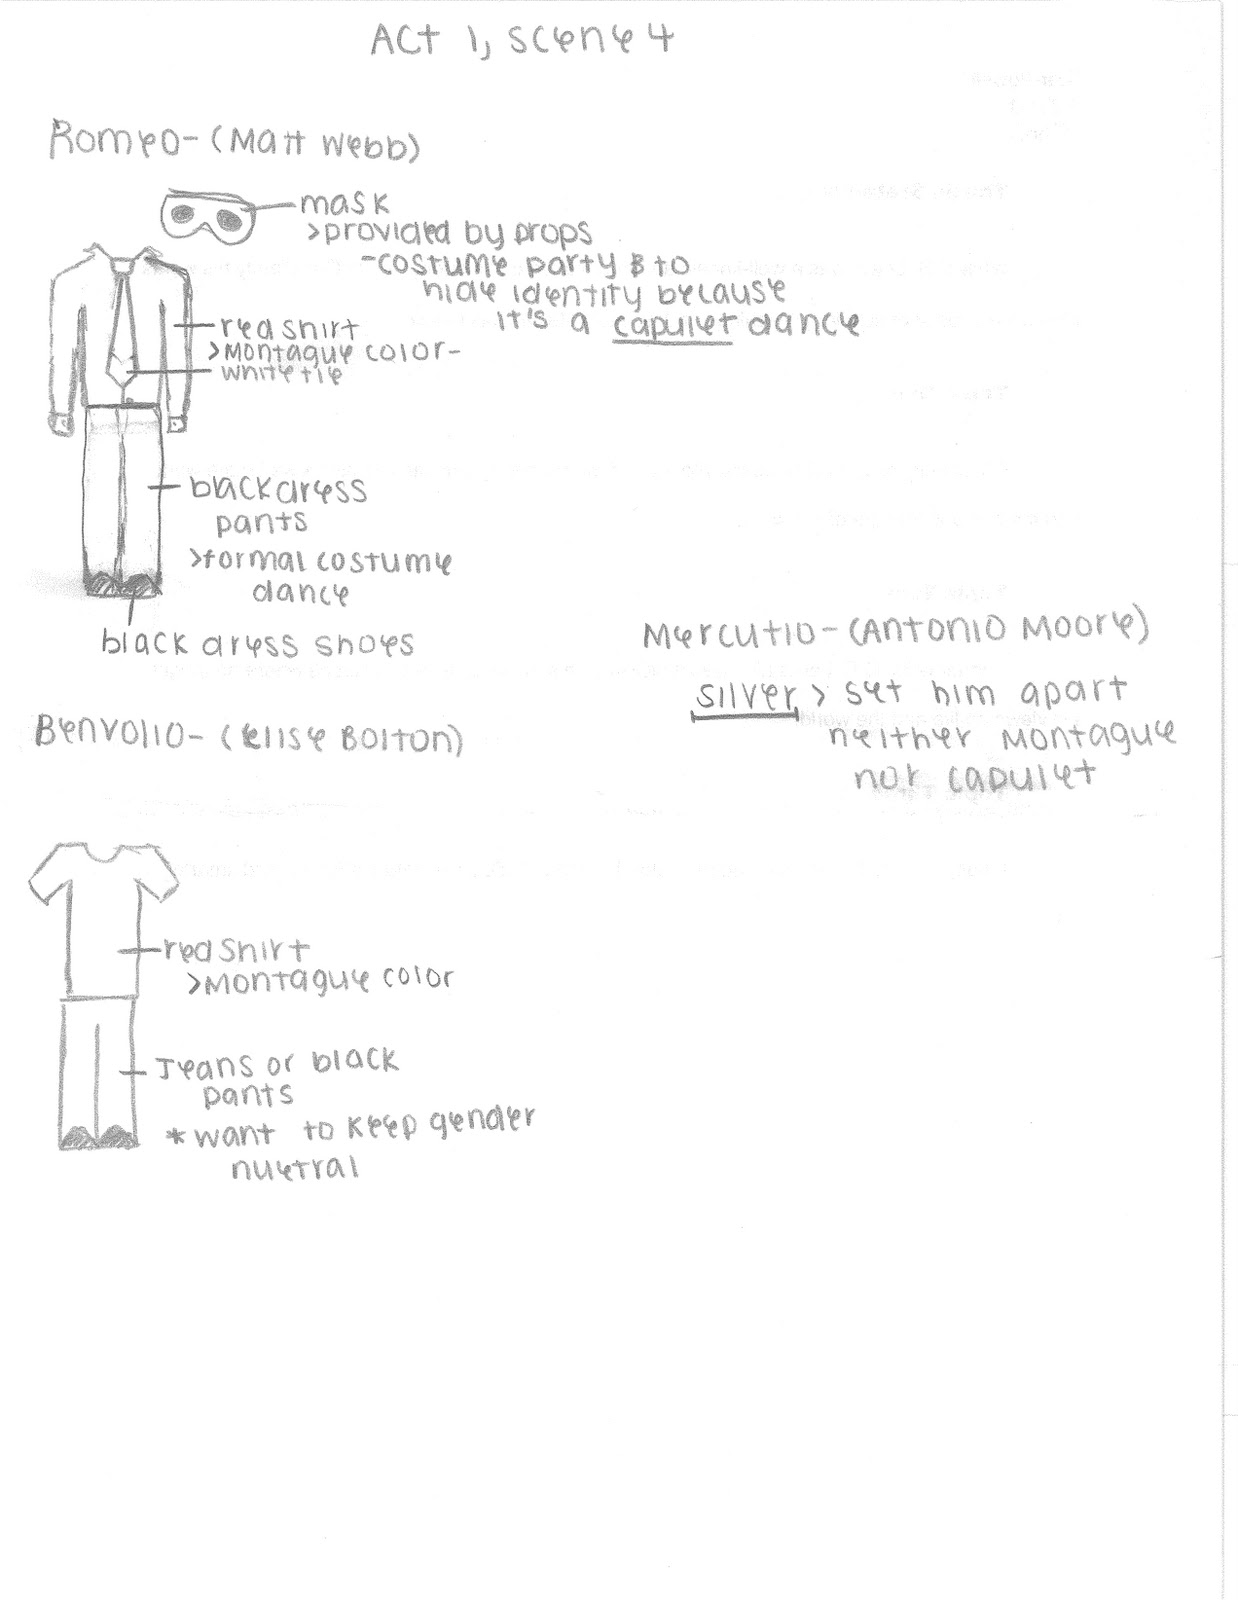 Act 1, scene 4
Romeo- (Matt Webb)
mask
>provided by props
-costume party & to
hide identity because
it's a capulet dance
red shirt
>Montague color-
white tie
black dress
pants
>formal costume
dance
black dress shoes
Mercutio- (Antonio Moore)
silver > set him apart
neither Montague
nor capulet
Benvolio- (Elise Bolton)
red shirt
>Montague color
Jeans or black
pants
* want to keep gender
nuetral